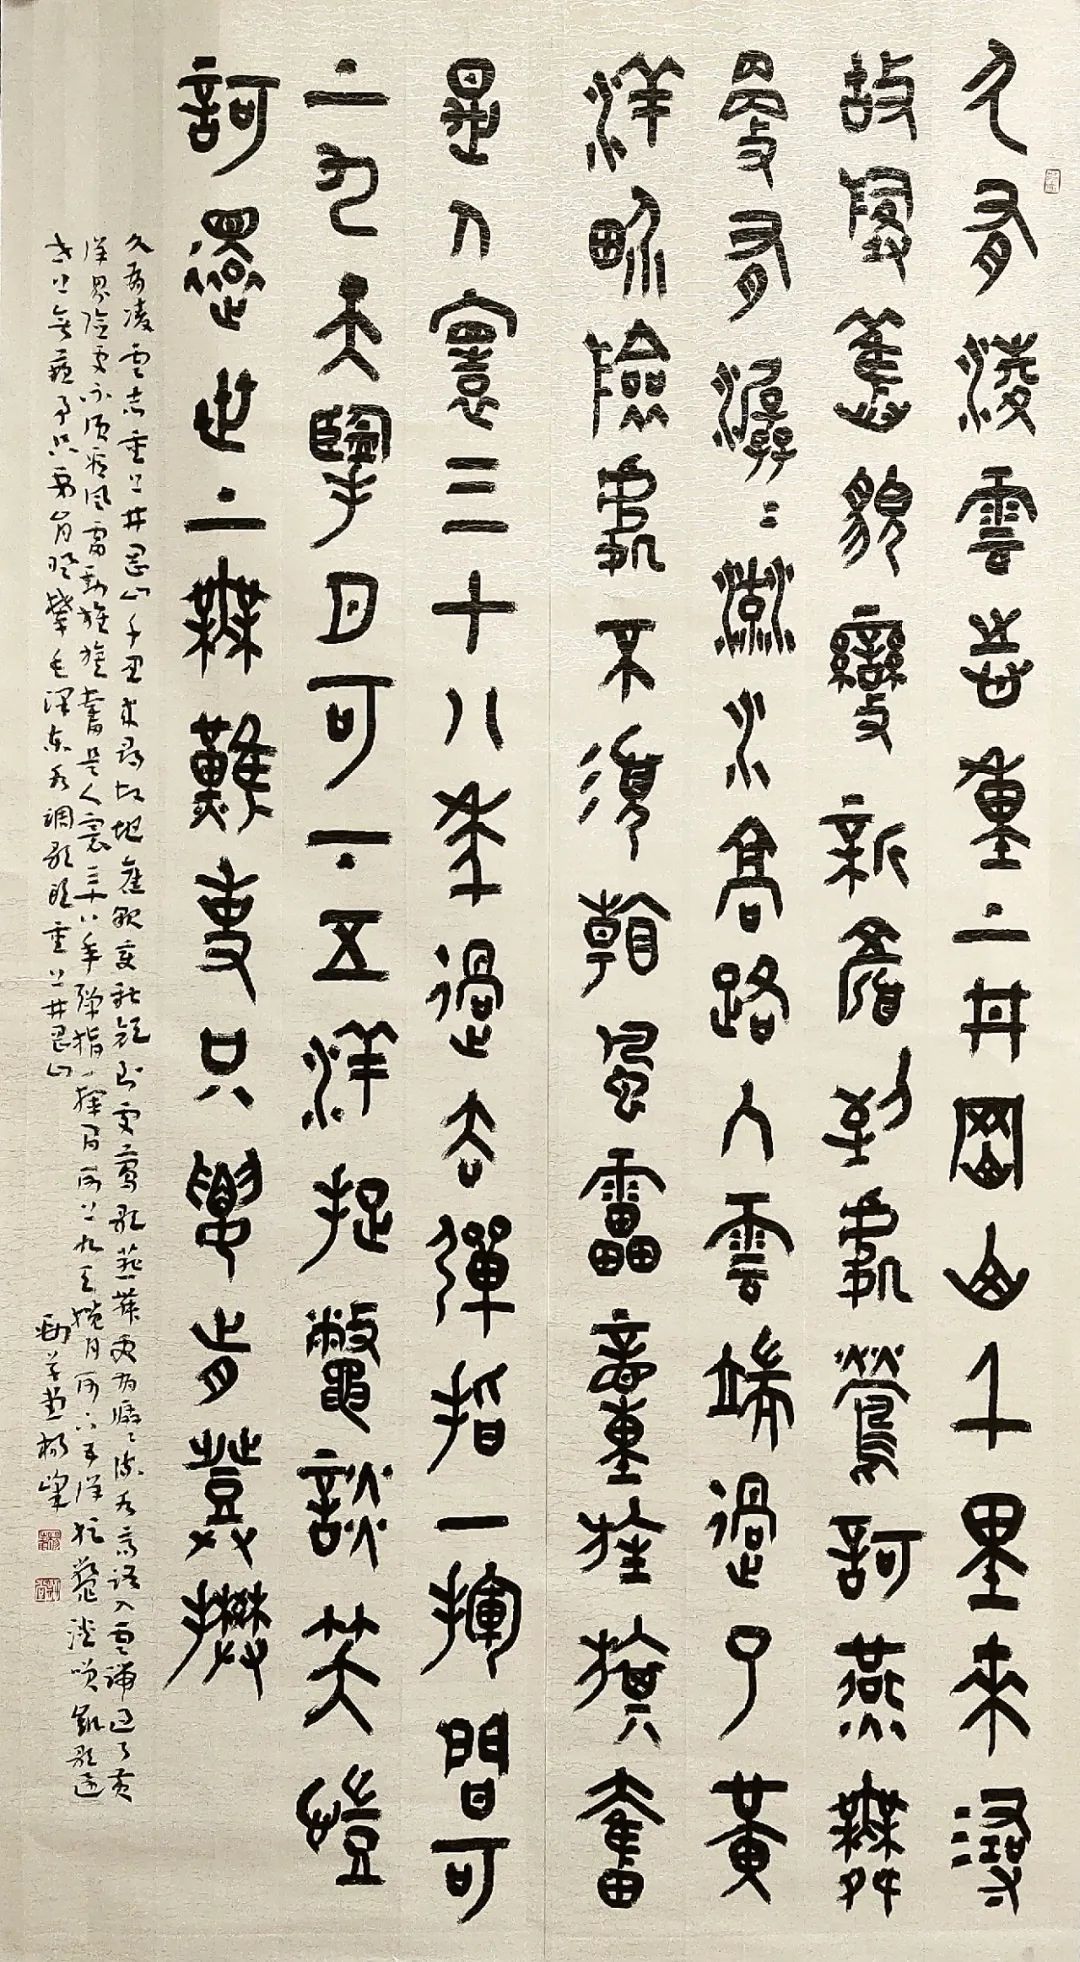 久有凌雲志重上井岡山千里来尋
故地舊貌變新顏到處鶯歌燕舞
更有潺〻流水高路入雲端過了黃
洋界險處不須看風雷動旌旗奮
是人寰三十八年過去彈指一揮間可
上九天攬月可下五洋捉鱉談笑凱
歌還世上無難事只要肯登攀
久有凌雲志重上井岡山千里來尋故地舊貌變新顏到處鶯歌燕舞更有潺〻流水高路入雲端過了黃
洋界險處不須看風雷動旌旗奮是人寰三十八年彈指一揮間可上九天攬月可下五洋捉鱉談笑凱歌還
世上無難事只要肯登攀毛澤東水調歌頭重上井岡山